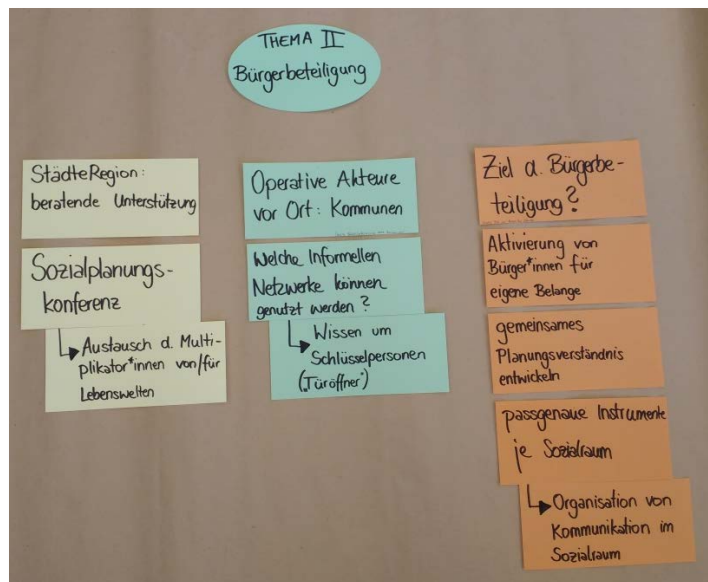 THEMA II
Bürgerbeteiligung
StädteRegion:
beratende Unterstützung
Sozialplanungs-
konferenz
Austausch d. Multi-
plikator*innen von/für
Lebenswelten
Operative Akteure
vor Ort: Kommunen
Welche Informellen
Netzwerke können
genutzt werden?
Wissen um
Schlüsselpersonen
("Türöffner")
Ziel d. Bürgerbe-
teiligung?
Aktivierung von
Bürger*innen für
eigene Belange
gemeinsames
Planungsverständnis
entwickeln
passgenaue Instrumente
je Sozialraum
Organisation von
Kommunikation im
Sozialraum